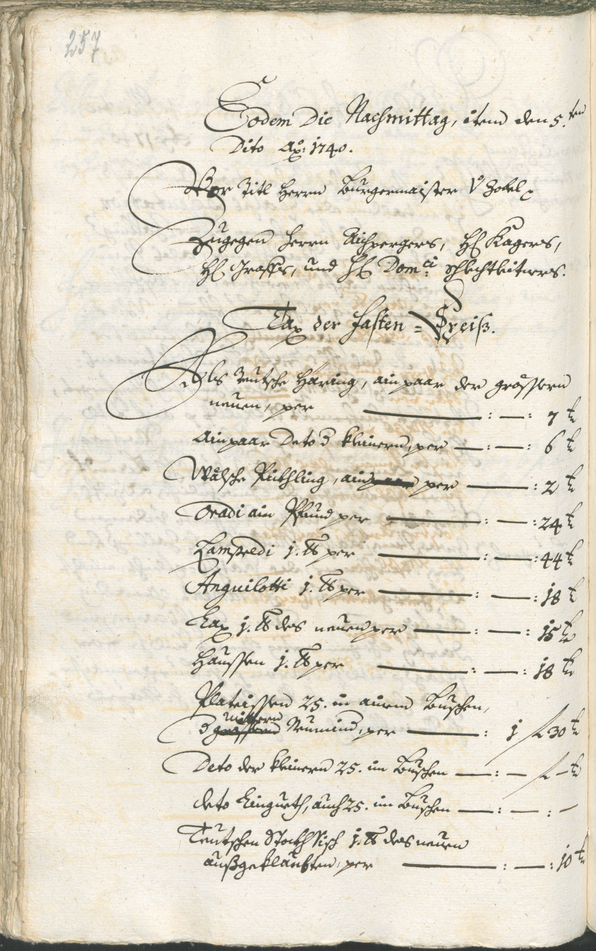 257
Eodem Die Nachmittag, item den 5.ten
Dito Ao: 1740.
Vor Titl Herrn Burgermaister V Zobel
Zugegen Herrn Aichpergers, H: Kagers,
H: Graffs, und H: Domci: Schlechtleitners.
Tax der Fasten = Speiß.
Als Teutsche Häring, ain paar der grössern
neuen, per — : — : 7 kr
Ain paar Deto d kleinern, per — : — : 6 kr
Wälsche Pichling, ain per — : — : 2 kr
Oradi ain Pfund per — : — : 24 kr
Lampredi 1. lb per — : — : 44 kr
Anguilotti 1. lb per — : — : 18 kr
Lax 1. lb des neuen per — : — : 15 kr
Haussen 1. lb per — : — : 18 kr
Plateissen 25. in ainem Buschen,
d mittern per — : 1 f 30 kr
Deto der kleinern 25. im Buschen — : — f — kr
deto auch 25. im Buschen — : — : —
Teutschen Stockfisch 1. lb des neuen
außgeklaubten, per — : — : 10 kr